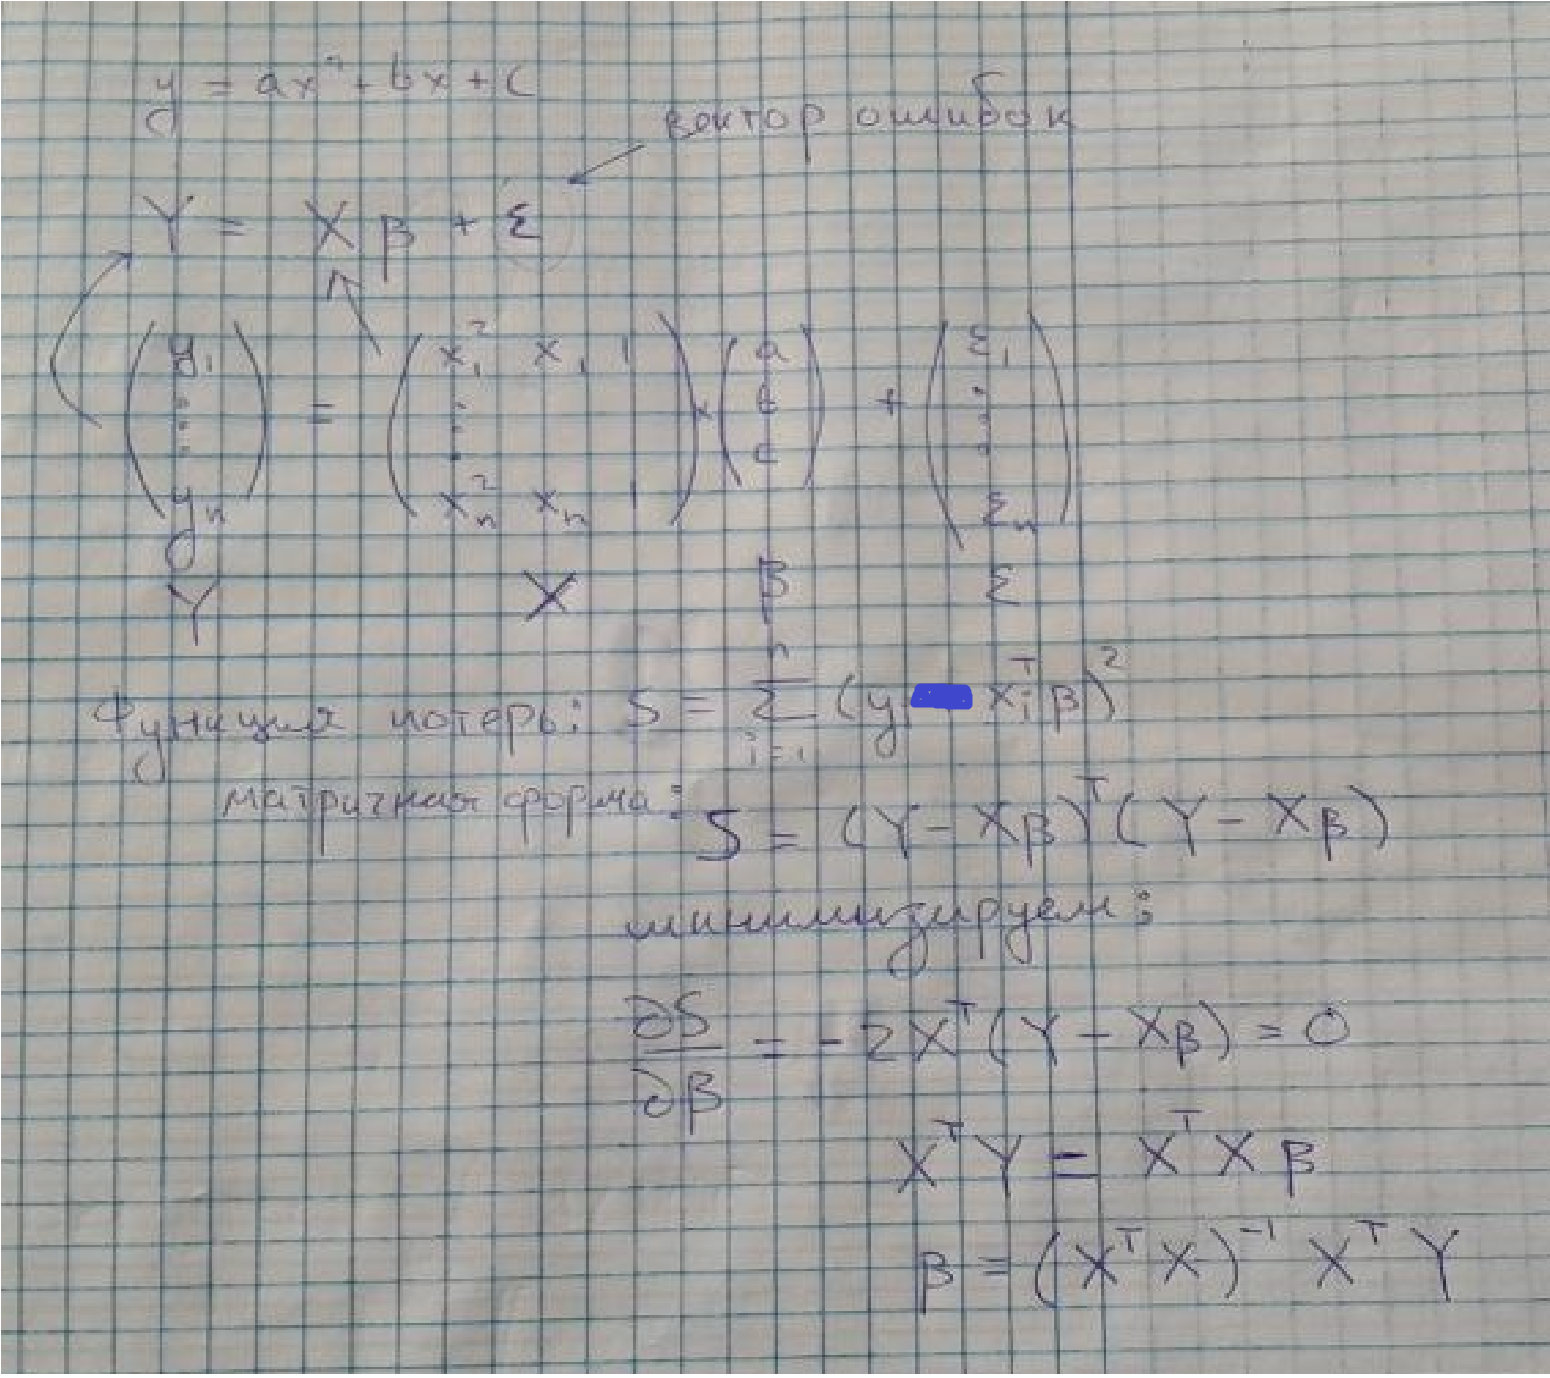 y = ax² + bx + c
вектор ошибок
Y = X β + ε
(y₁ ⋮ yₙ) = (x₁² x₁ 1 ⋮ xₙ² xₙ 1) × (a b c) + (ε₁ ⋮ εₙ)
Y X β ε
Функция потерь: S = Σⁿᵢ₌₁ (y xᵢᵀβ)²
матричная форма: S = (Y − Xβ)ᵀ(Y − Xβ)
минимизируем:
∂S/∂β = −2Xᵀ(Y − Xβ) = 0
XᵀY = XᵀXβ
β = (XᵀX)⁻¹ XᵀY